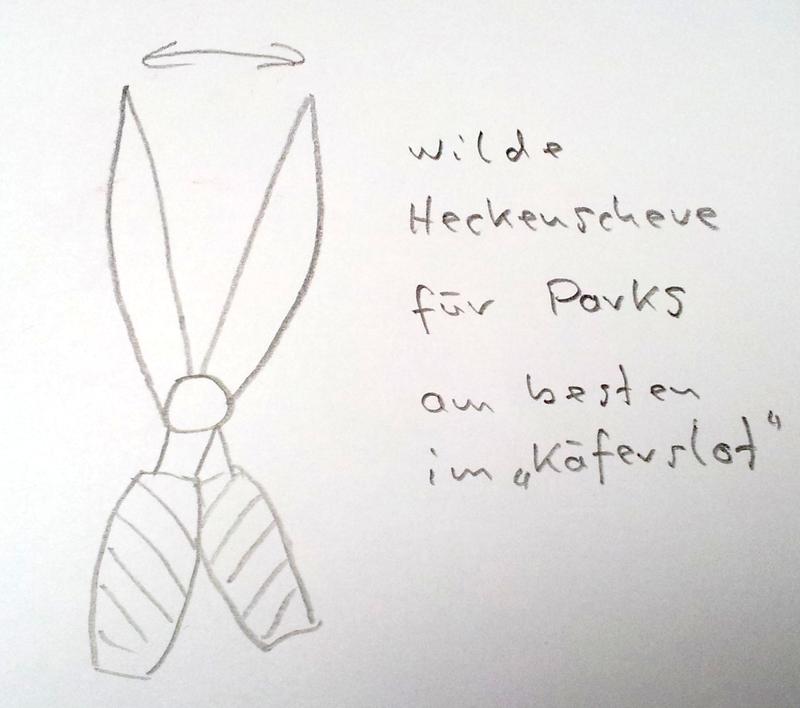 wilde
Heckenschere
für Parks
am besten
im „Käferslot"